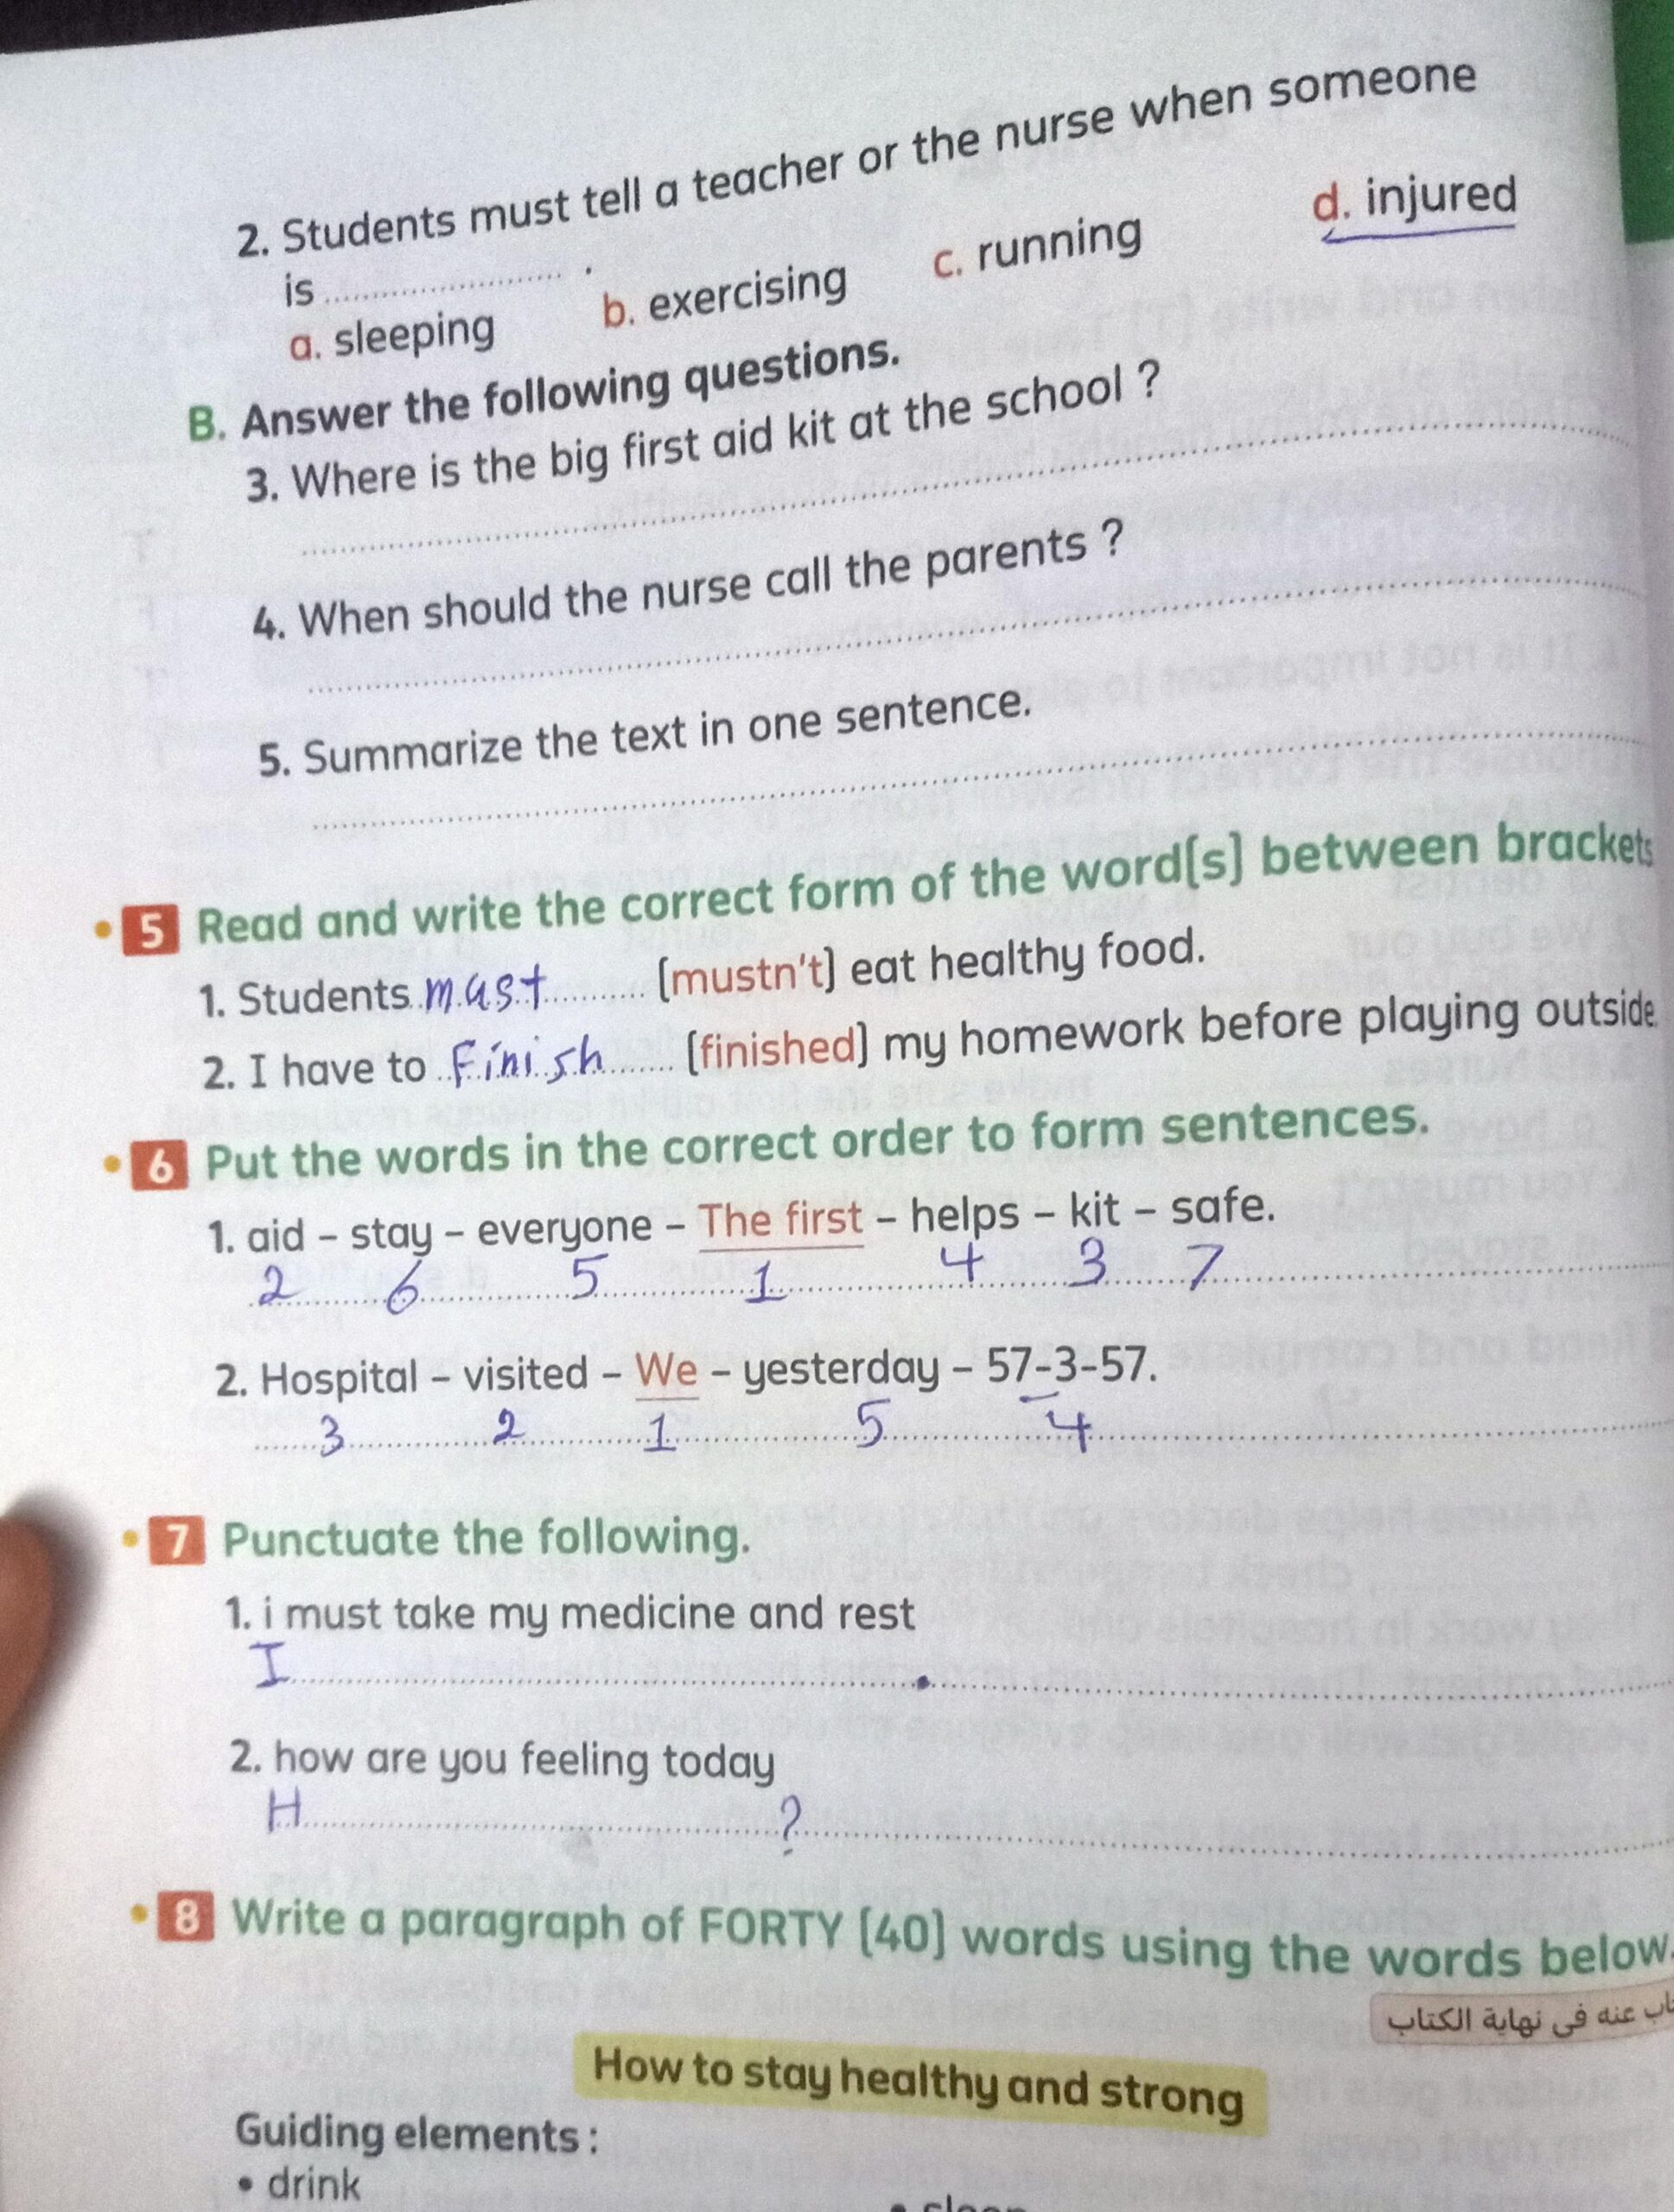 2. Students must tell a teacher or the nurse when someone
is ........................ .
a. sleeping b. exercising c. running d. injured
B. Answer the following questions.
3. Where is the big first aid kit at the school ?
4. When should the nurse call the parents ?
5. Summarize the text in one sentence.
5 Read and write the correct form of the word(s) between brackets
1. Students must (mustn't) eat healthy food.
2. I have to Finish (finished) my homework before playing outside
6 Put the words in the correct order to form sentences.
1. aid – stay – everyone – The first – helps – kit – safe.
2 6 5 1 4 3 7
2. Hospital – visited – We – yesterday – 57-3-57.
3 2 1 5 4
7 Punctuate the following.
1. i must take my medicine and rest
I .
2. how are you feeling today
H ?
8 Write a paragraph of FORTY (40) words using the words below.
عنه فى نهاية الكتاب
How to stay healthy and strong
Guiding elements :
• drink